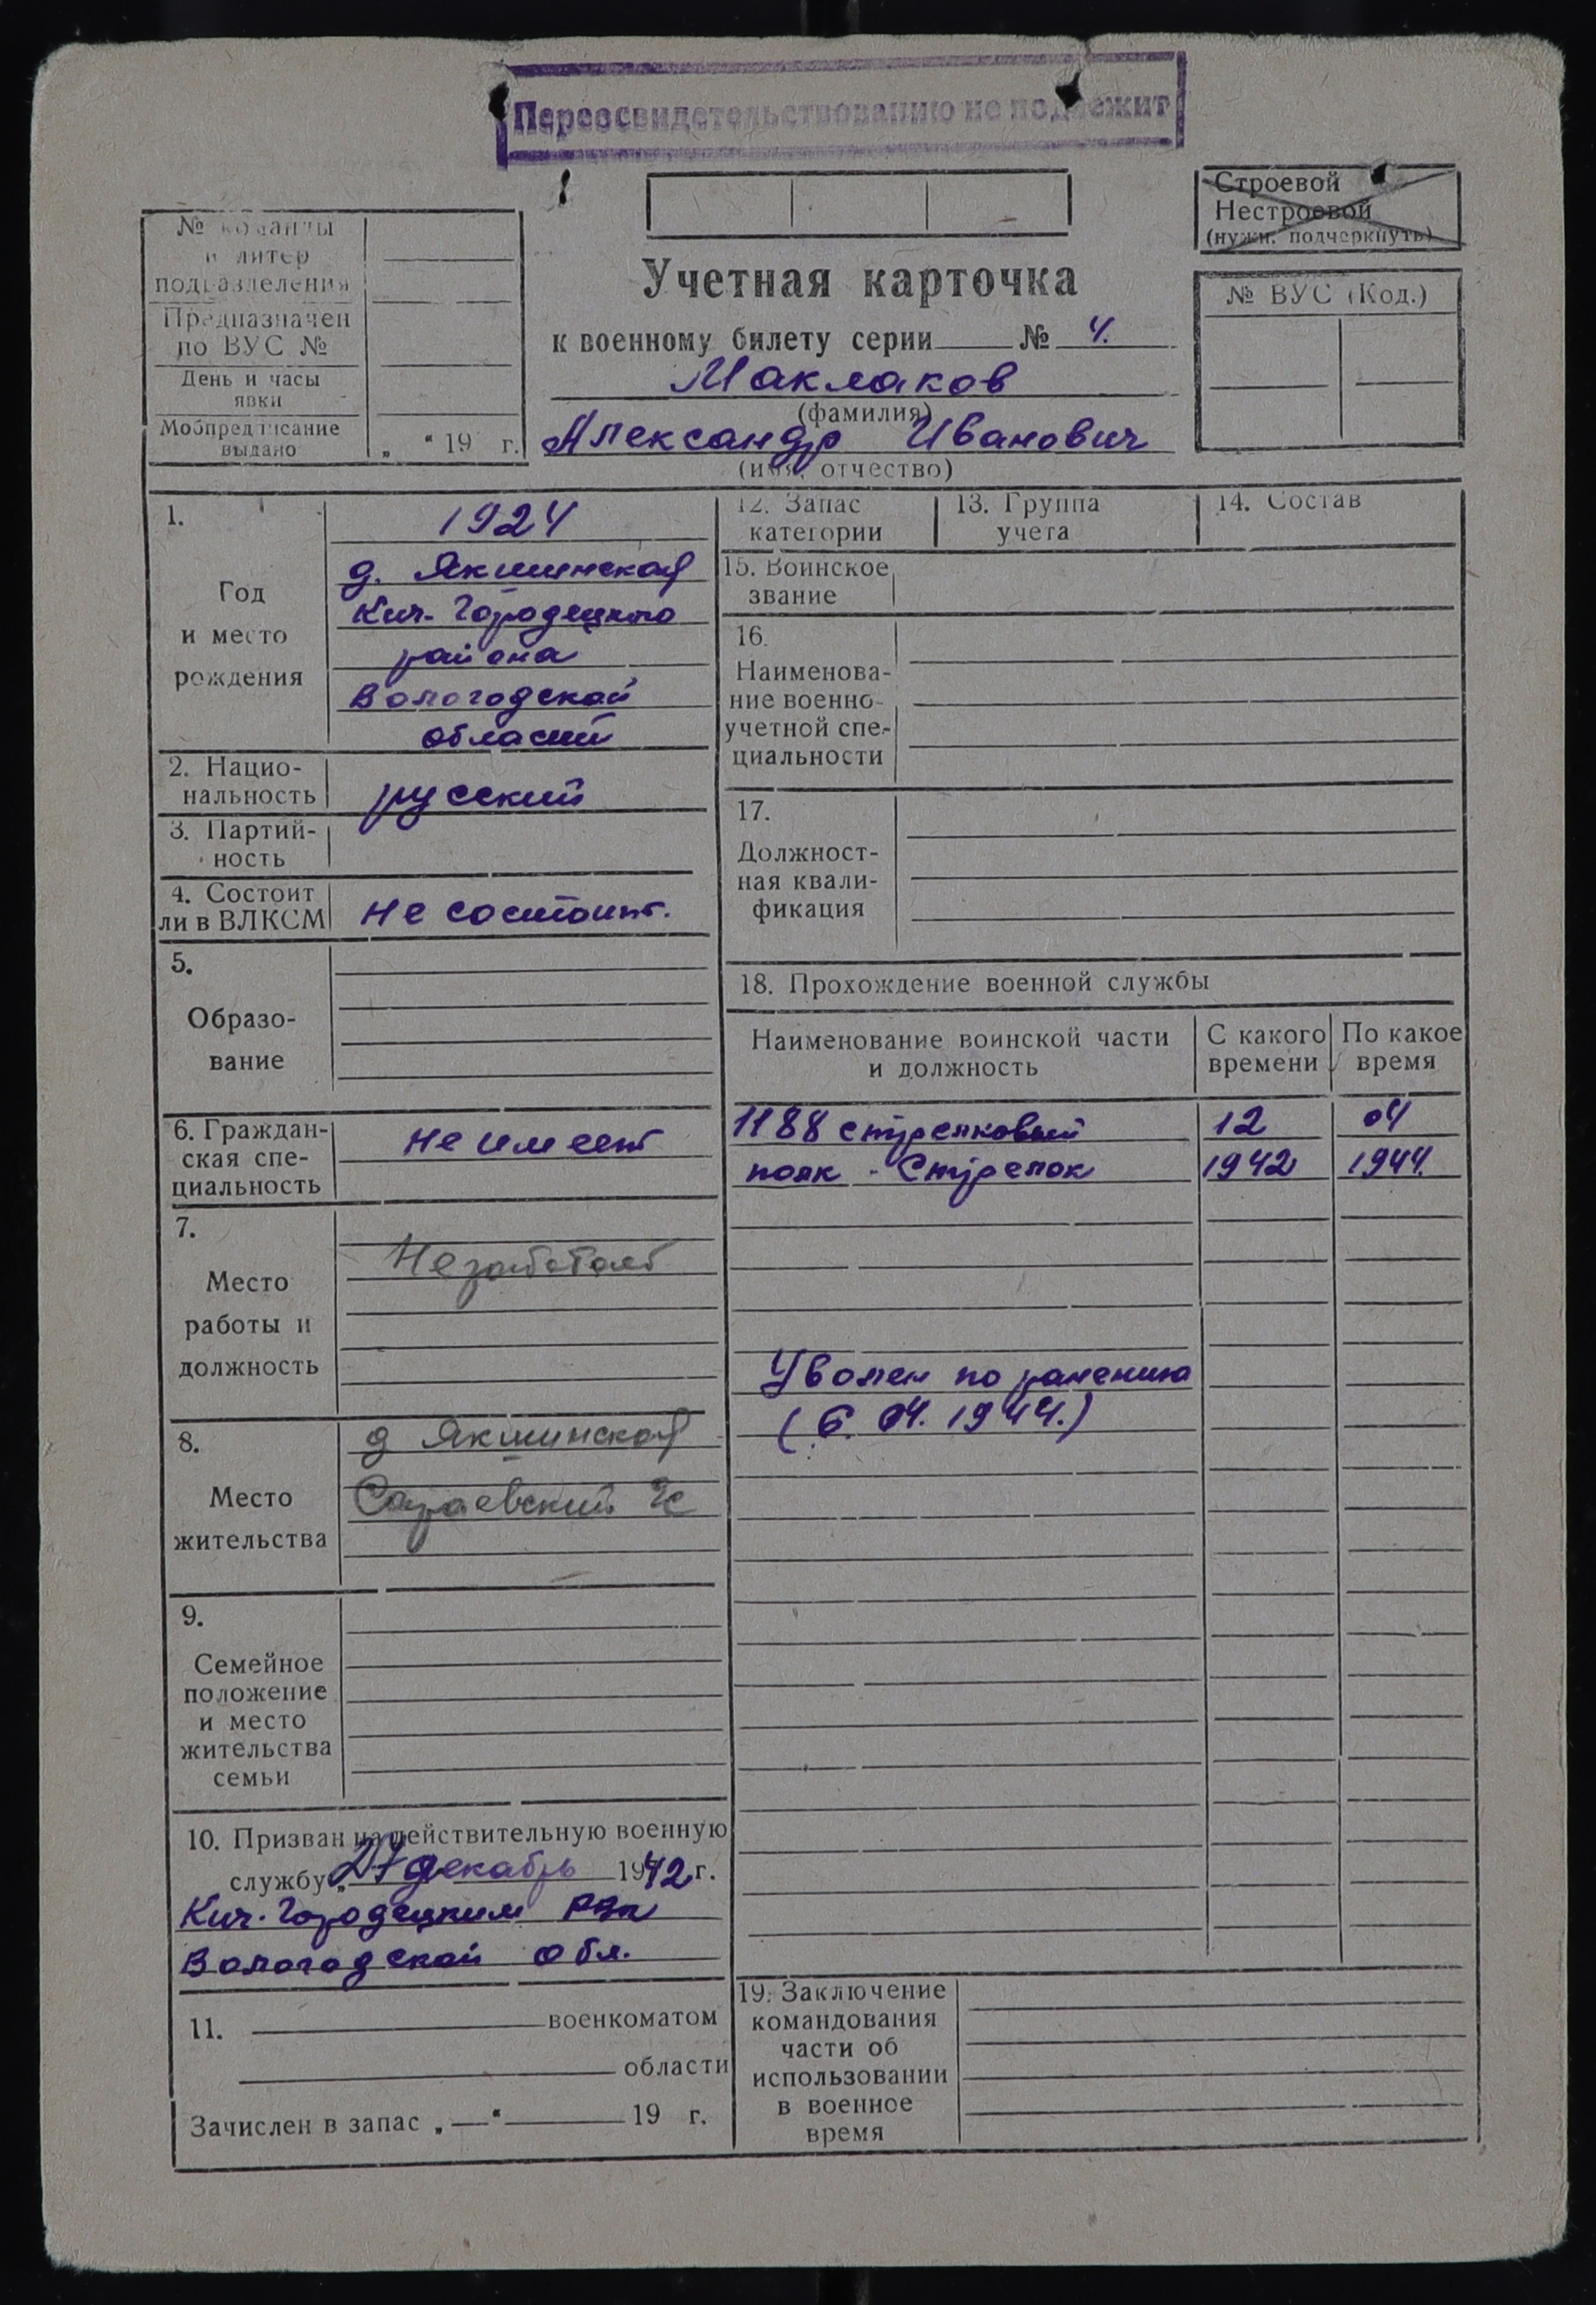 Переосвидетельствованию не подлежит
Строевой
Нестроевой
(нужн. подчеркнуть)
№ команды
и литер
подразделения
Предназначен
по ВУС №
День и часы
явки
Мобпредписание
выдано
„ “ 19 г.
Учетная карточка
к военному билету серии № 4.
Маклаков
(фамилия)
Александр Иванович
(имя, отчество)
№ ВУС (Код.)
1.
Год
и место
рождения
1924
д. Якшинская
Кич-Городецкого
района
Вологодской
области
2. Нацио-
нальность
русский
3. Партий-
ность
4. Состоит
ли в ВЛКСМ
не состоит.
5.
Образо-
вание
6. Граждан-
ская спе-
циальность
не имеет
7.
Место
работы и
должность
8.
Место
жительства
д Якшинская
Сараевский с/с
9.
Семейное
положение
и место
жительства
семьи
10. Призван на действительную военную
службу „27 декабрь 1942 г.
Кич-Городецким РВК
Вологодской обл.
11. военкоматом
области
Зачислен в запас „—“ 19 г.
12. Запас
категории
13. Группа
учета
14. Состав
15. Воинское
звание
16.
Наименова-
ние военно-
учетной спе-
циальности
17.
Должност-
ная квали-
фикация
18. Прохождение военной службы
Наименование воинской части
и должность
С какого
времени
По какое
время
1188 стрелковый 12 04
полк - Стрелок 1942 1944.
Уволен по ранению
(6. 04. 1944.)
19. Заключение
командования
части об
использовании
в военное
время